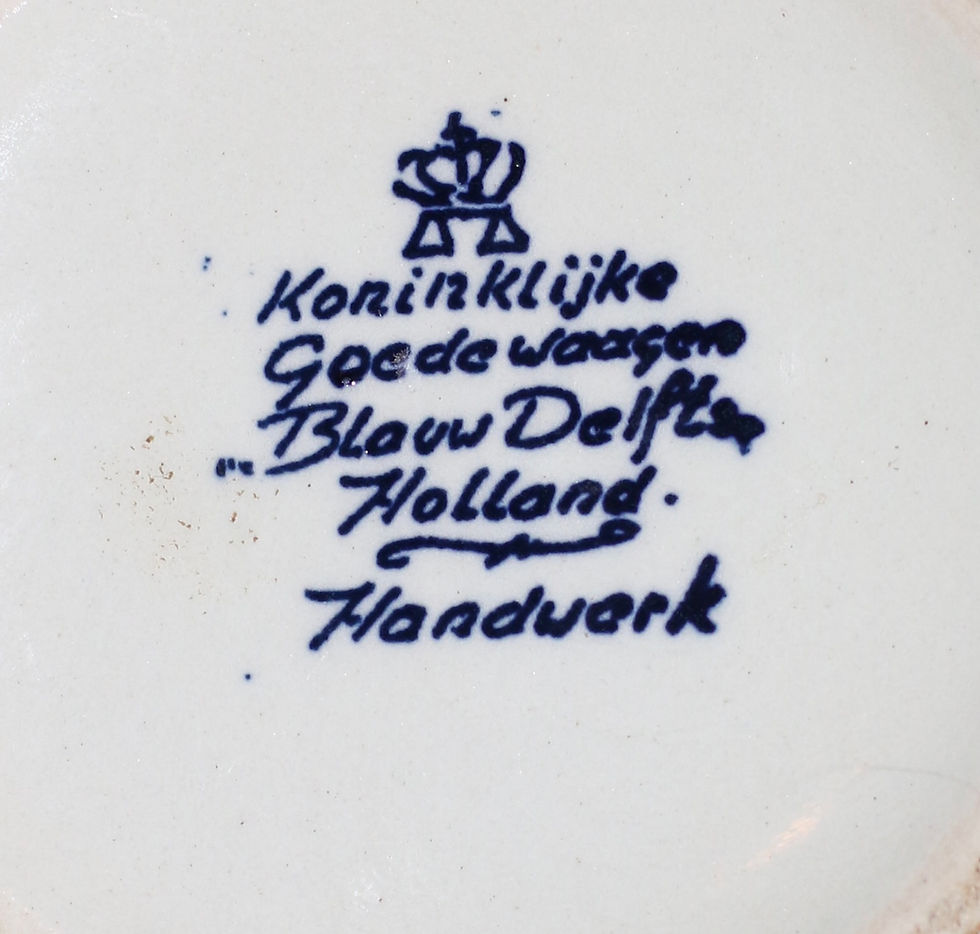 Koninklijke
Goedewaagen
Blauw Delfts
Holland.
Handwerk